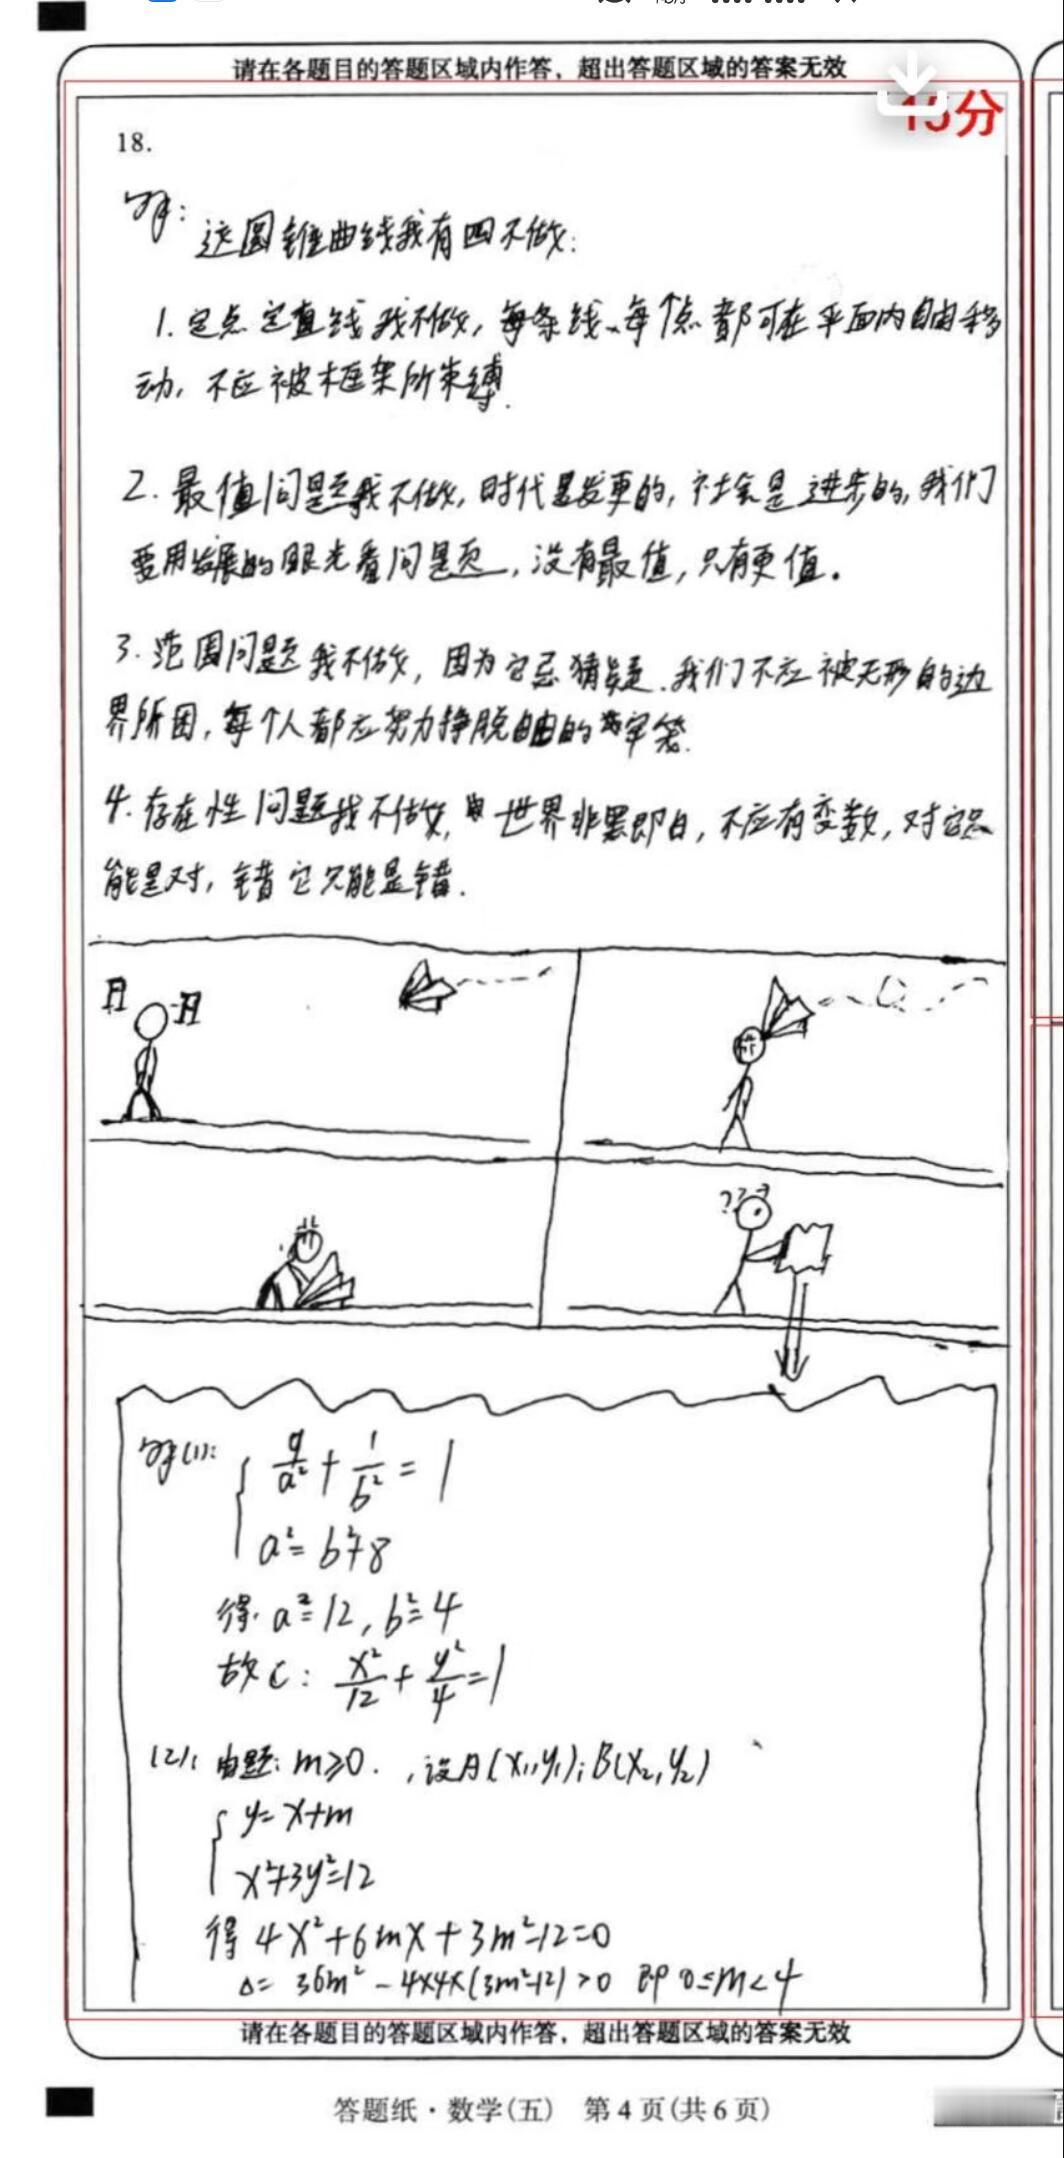 请在各题目的答题区域内作答，超出答题区域的答案无效
15分
18.
解：
这圆锥曲线我有四不做：
1. 定点定直线我不做，每条线、每个点都可在平面内自由移
动，不应被框架所束缚.
2. 最值问题我不做，时代是发展的，社会是进步的，我们
要用发展的眼光看问题，没有最值，只有更值。
3. 范围问题我不做，因为它忌猜疑.我们不应被无形的边
界所困，每个人都应努力挣脱自由的牢笼.
4. 存在性问题我不做，世界非黑即白，不应有变数，对它只
能是对，错它只能是错.
???
解(1):
{ 9/a² + 1/b² = 1
a² = b²+8
得. a²=12, b²=4
故C: x²/12 + y²/4 = 1
(2): 由题: m≥0. , 设A(x₁,y₁); B(x₂,y₂)
{ y=x+m
x²+3y²=12
得 4x²+6mx+3m²-12=0
Δ= 36m² - 4×4×(3m²-12)>0 即 0≤m<4
请在各题目的答题区域内作答，超出答题区域的答案无效
答题纸·数学(五) 第4页(共6页)